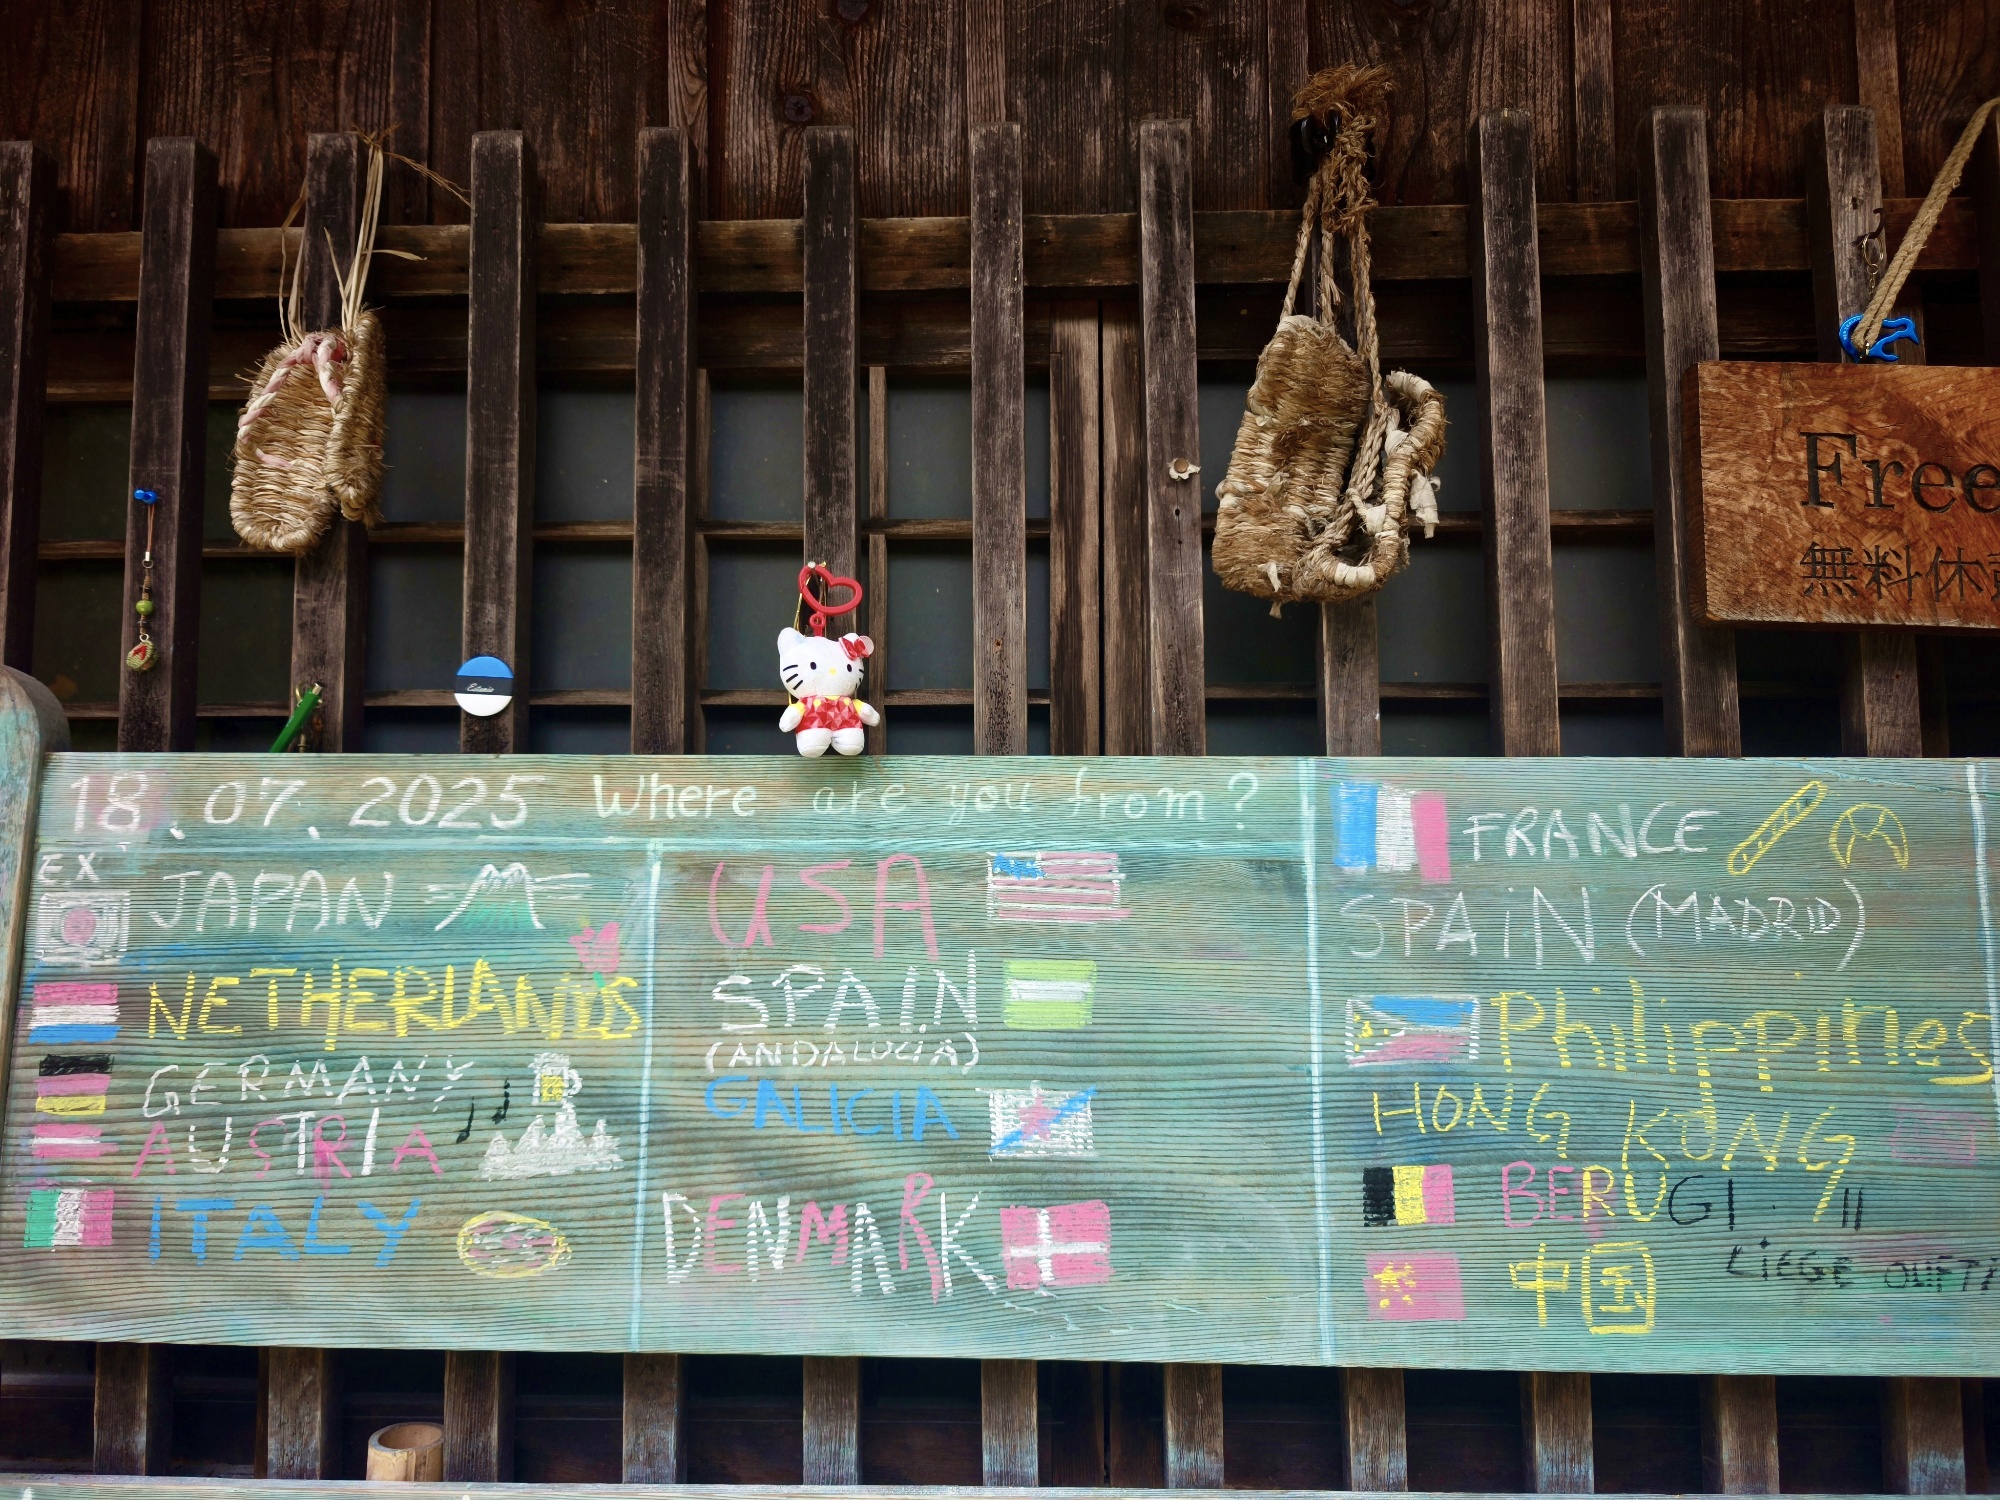 Free
無料休
Estonia
18.07.2025 Where are you from?
EX
JAPAN
NETHERLANDS
GERMANY
AUSTRIA
ITALY
USA
SPAIN
(ANDALUCIA)
GALICIA
DENMARK
FRANCE
SPAIN (MADRID)
Philippines
HONG KONG
BERUGI
中国
LiEGE